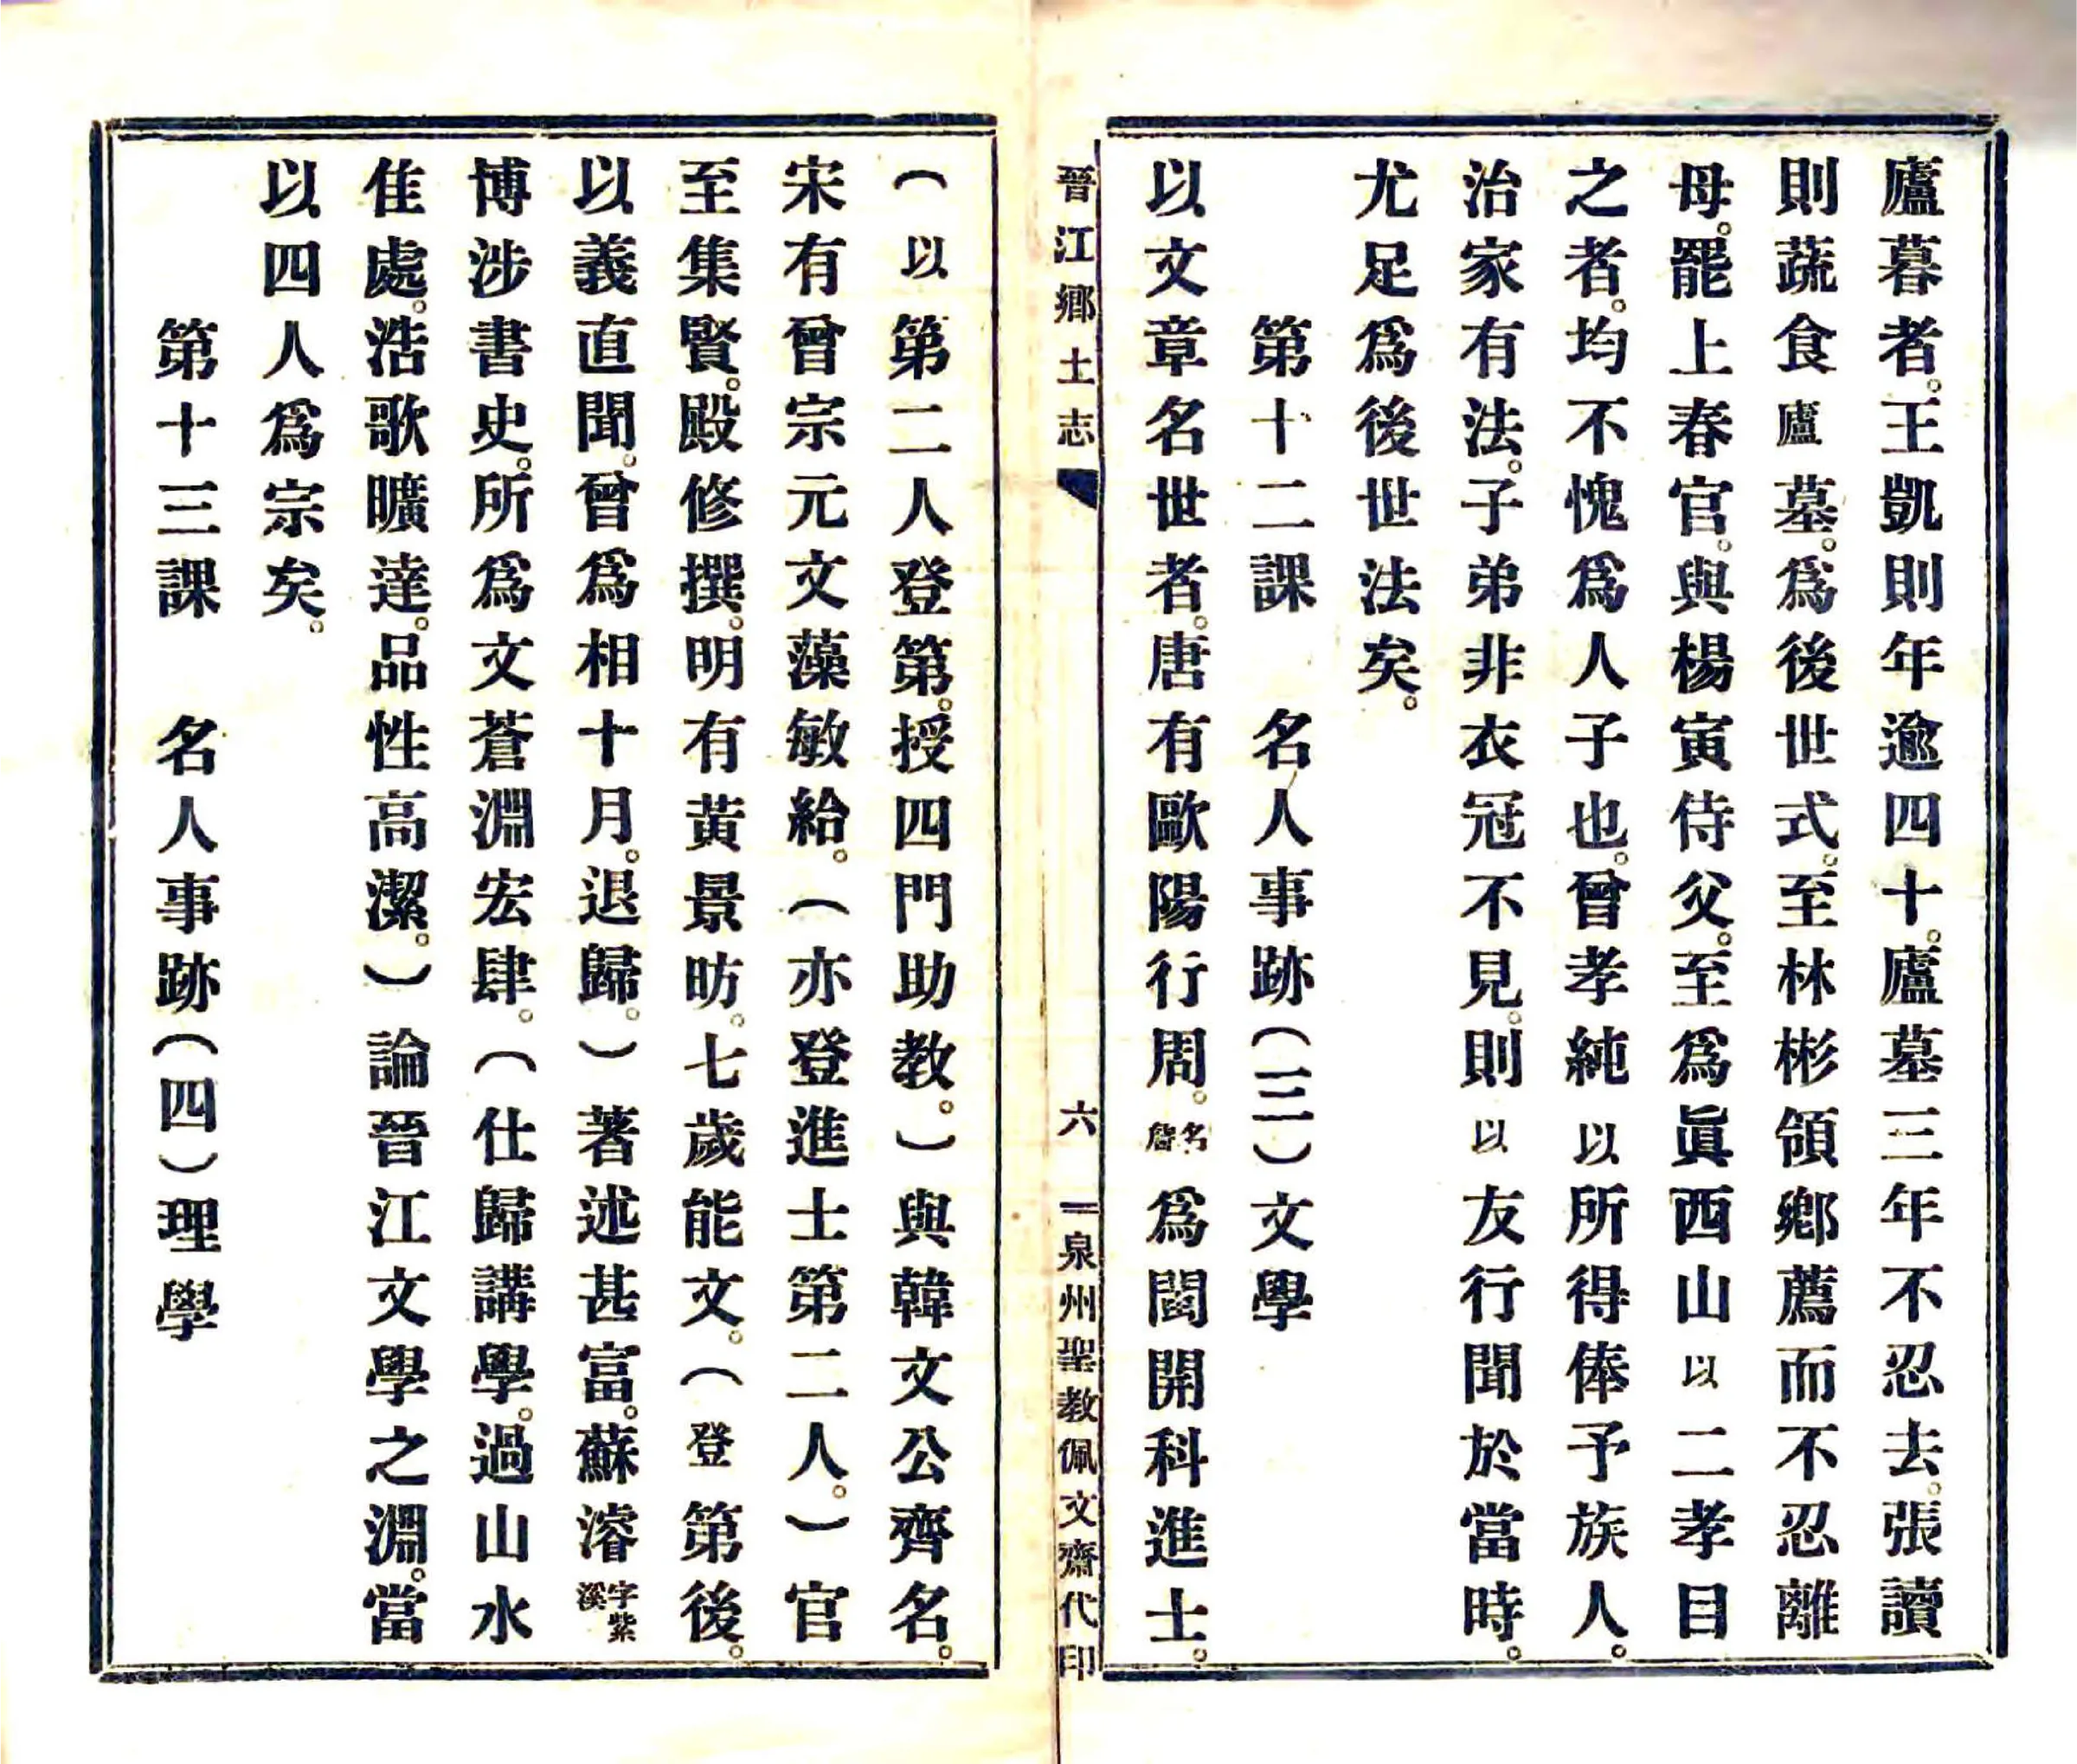 廬暮者。王凱則年逾四十。廬墓三年不忍去。張讀
則蔬食廬墓。爲後世式。至林彬領鄉薦而不忍離
母。罷上春官。與楊寅侍父。至爲眞西山以二孝目
之者。均不愧爲人子也。曾孝純以所得俸予族人。
治家有法。子弟非衣冠不見。則以友行聞於當時。
尤足爲後世法矣。
第十二課　名人事跡（三）文學
以文章名世者。唐有歐陽行周。名詹爲閩開科進士。
晉江鄉土志
六
泉州聖教佩文齋代印
（以第二人登第。授四門助教。）與韓文公齊名。
宋有曾宗元文藻敏給。（亦登進士第二人。）官
至集賢。殿修撰。明有黃景昉。七歲能文。（登第後。
以義直聞。曾爲相十月。退歸。）著述甚富。蘇濬字紫溪
博涉書史。所爲文蒼淵宏肆。（仕歸講學。過山水
佳處。浩歌曠達。品性高潔。）論晉江文學之淵。當
以四人爲宗矣。
第十三課　名人事跡（四）理學